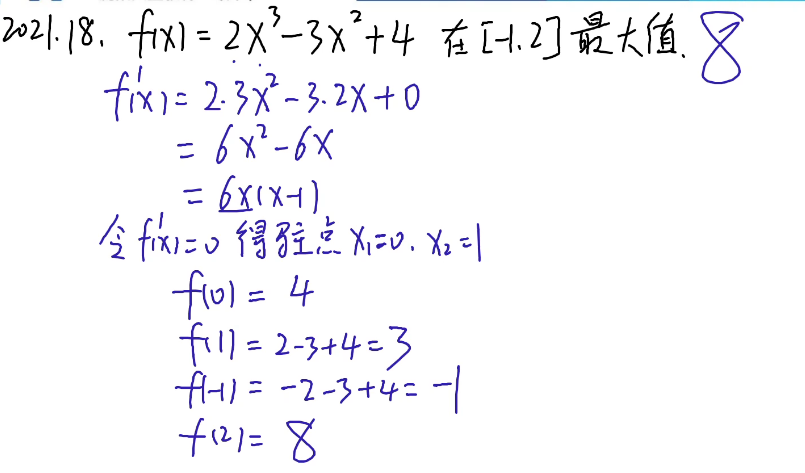 2021.18. f(x) = 2x³-3x²+4 在[-1.2]最大值. 8
f'(x) = 2·3x²-3·2x+0
= 6x²-6x
= 6x(x-1)
令f'(x)=0 得驻点 x₁=0. x₂=1
f(0) = 4
f(1) = 2-3+4=3
f(-1) = -2-3+4=-1
f(2) = 8